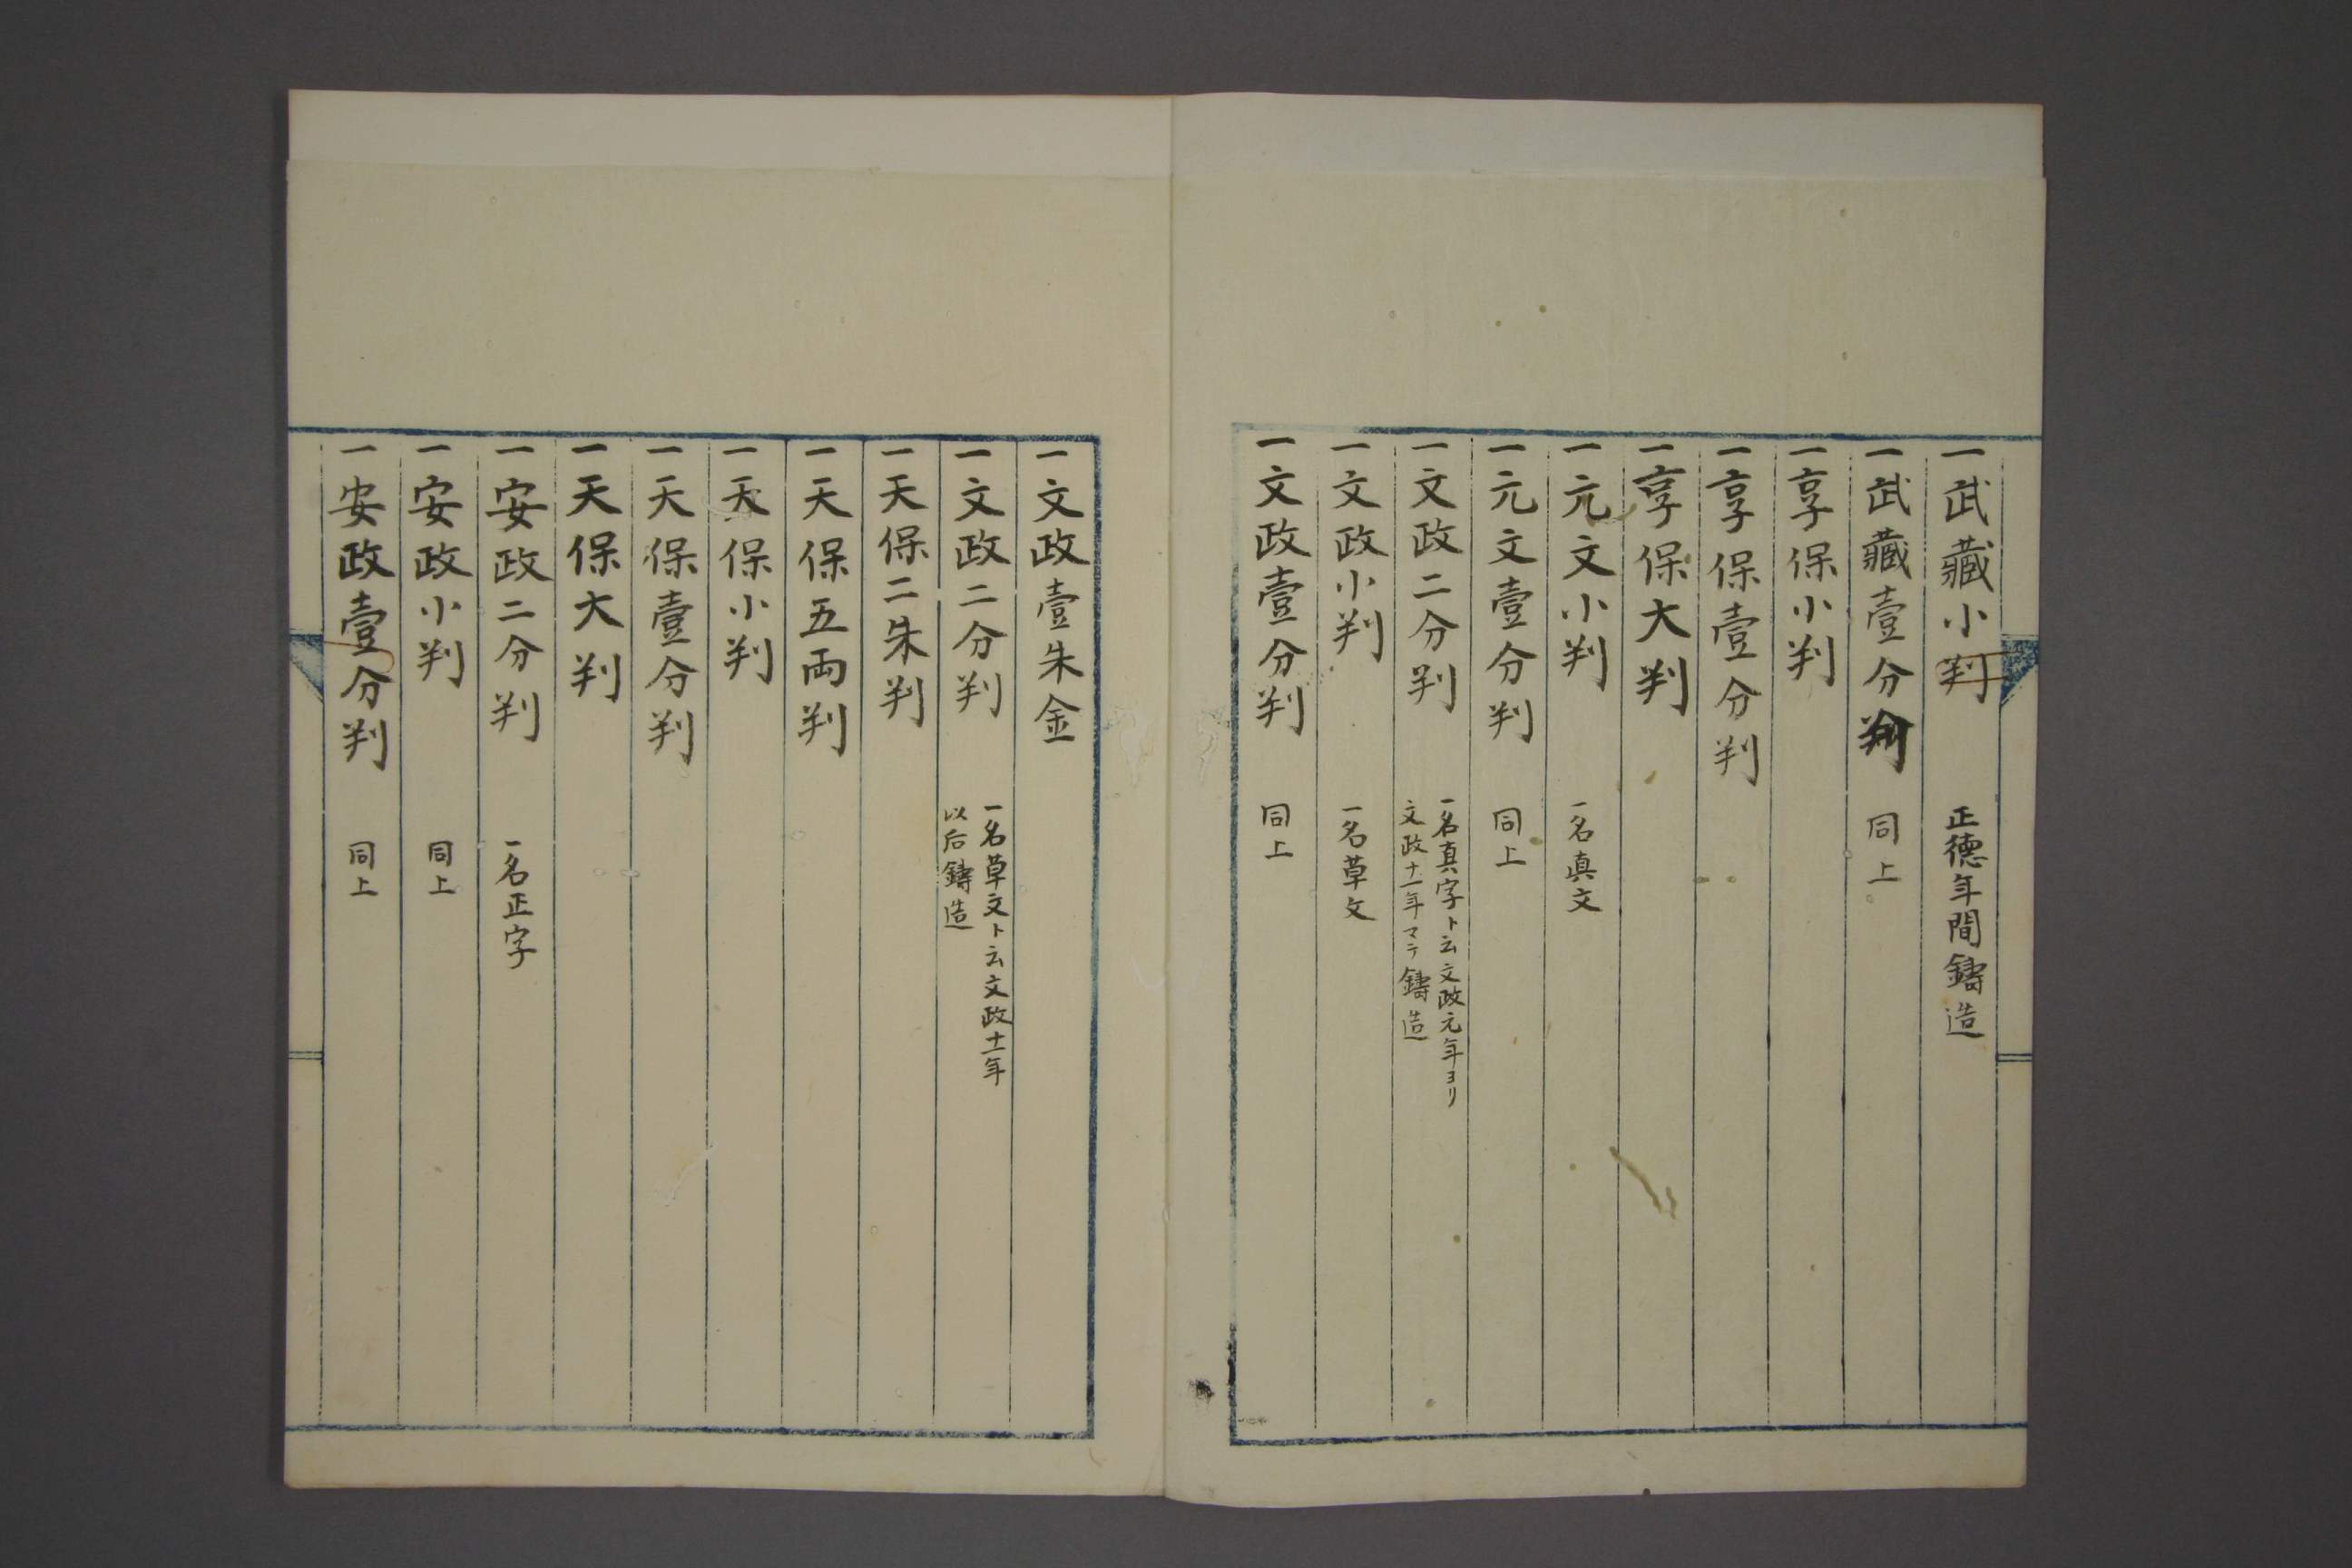 一武藏小判 正德年間鑄造
一武藏壹分判 同上
一享保小判
一享保壹分判
一享保大判
一元文小判 一名真文
一元文壹分判 同上
一文政二分判 一名真字ト云文政元年ヨリ
文政十一年マテ鑄造
一文政小判 一名草文
一文政壹分判 同上
一文政壹朱金
一文政二分判 一名草文ト云文政十一年
以后鑄造
一天保二朱判
一天保五両判
一天保小判
一天保壹分判
一天保大判
一安政二分判 一名正字
一安政小判 同上
一安政壹分判 同上